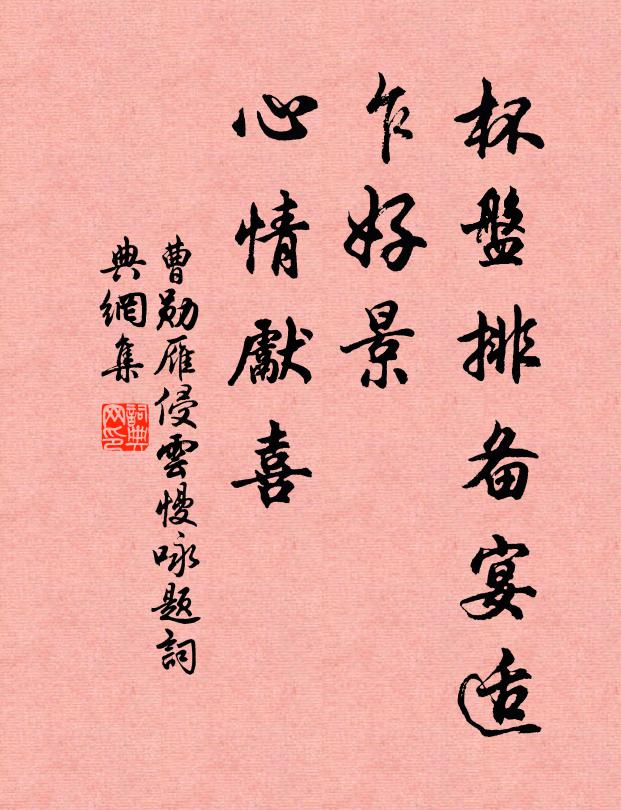 杯盤排备宴适
乍好景
心情獻喜
曹勋雁侵雲慢咏题詞
典網集
詞典网印